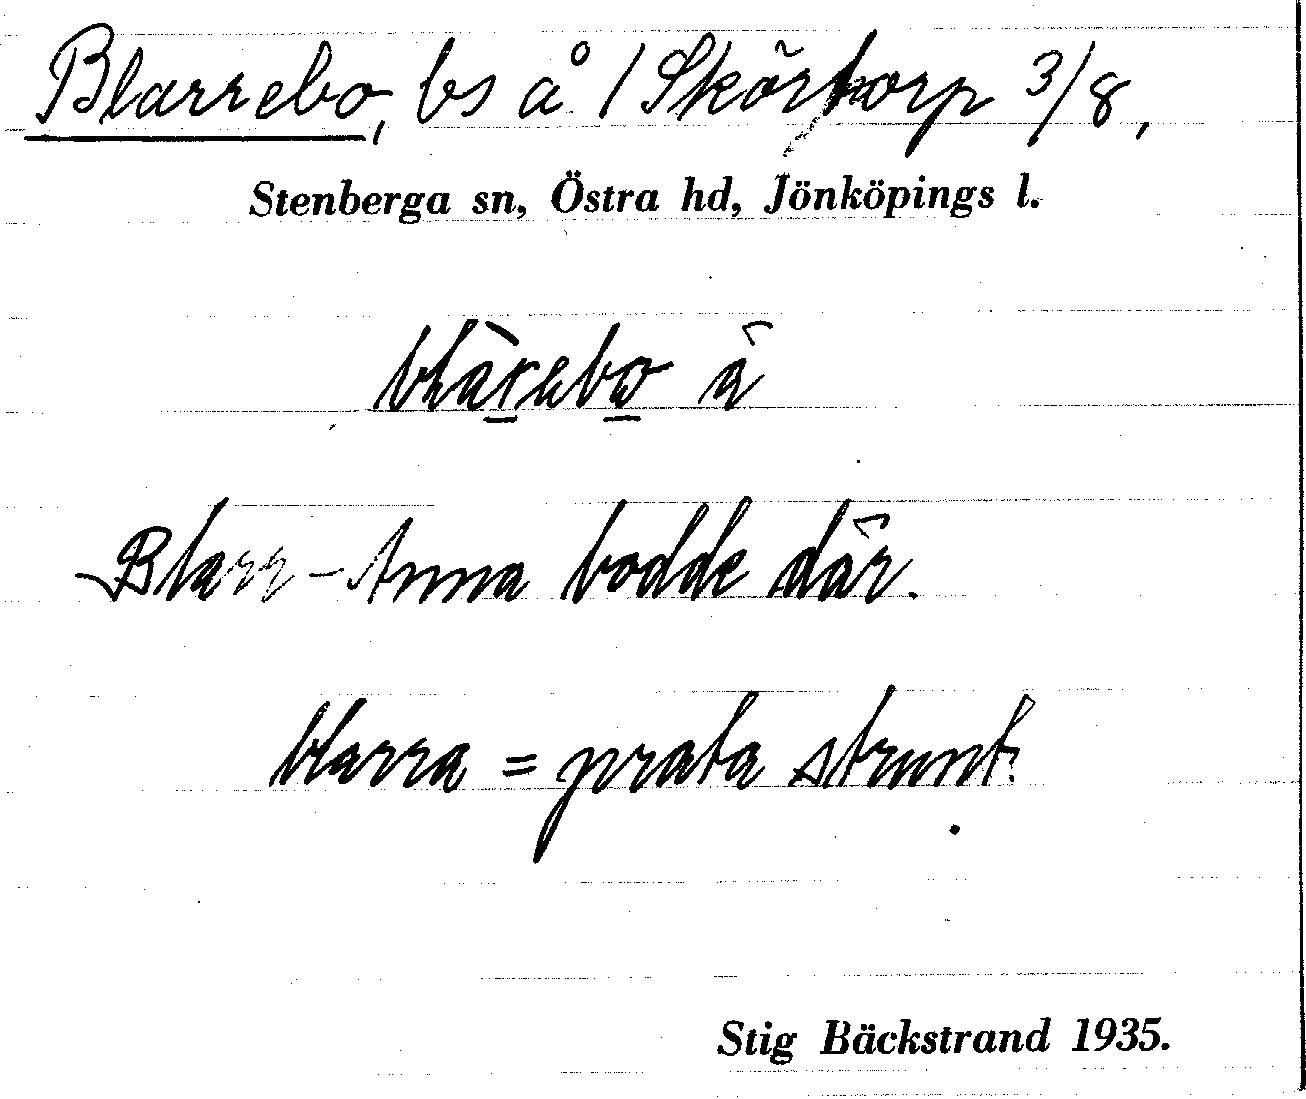 Blarrebo, bs å /Skörtorp 3/8,
Stenberga sn, Östra hd, Jönköpings l.
blàrebω å
Blarr-Anna bodde där.
blarra = prata strunt.
Stig Bäckstrand 1935.